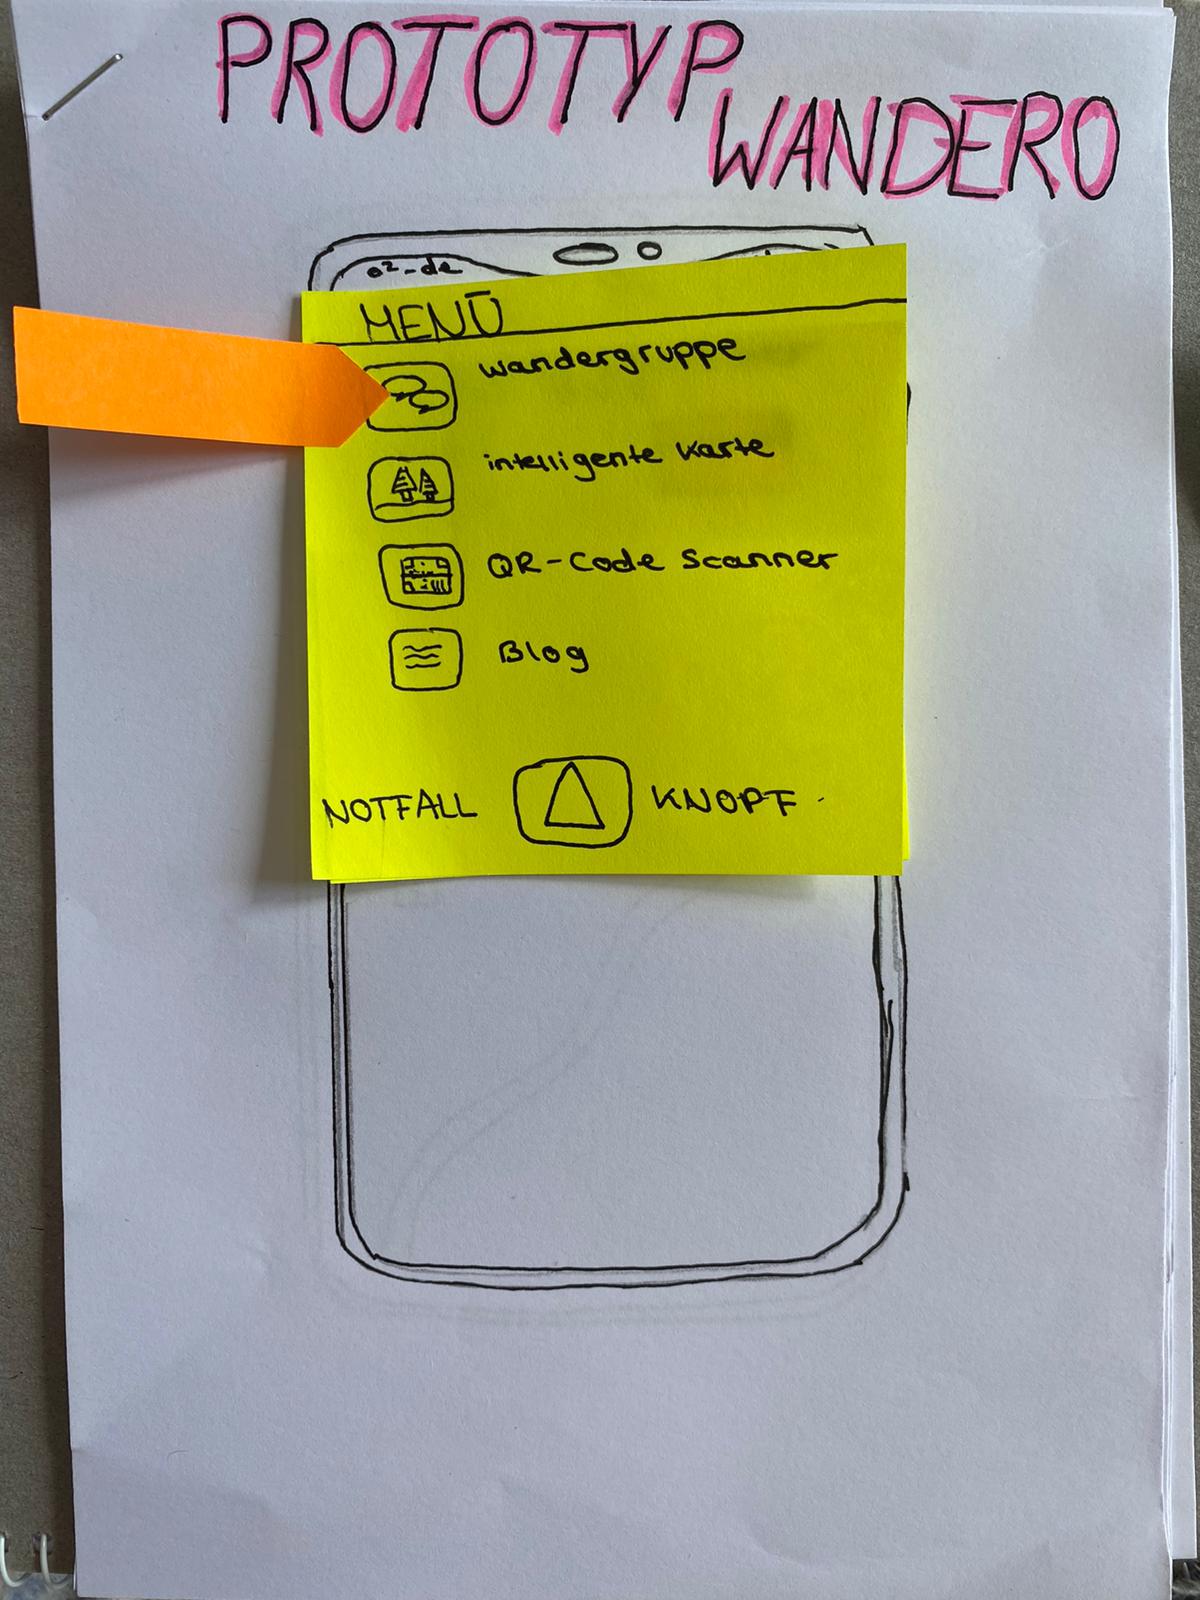 PROTOTYP
WANDERO
o2-de
MENÜ
wandergruppe
intelligente Karte
QR-Code Scanner
Blog
NOTFALL KNOPF